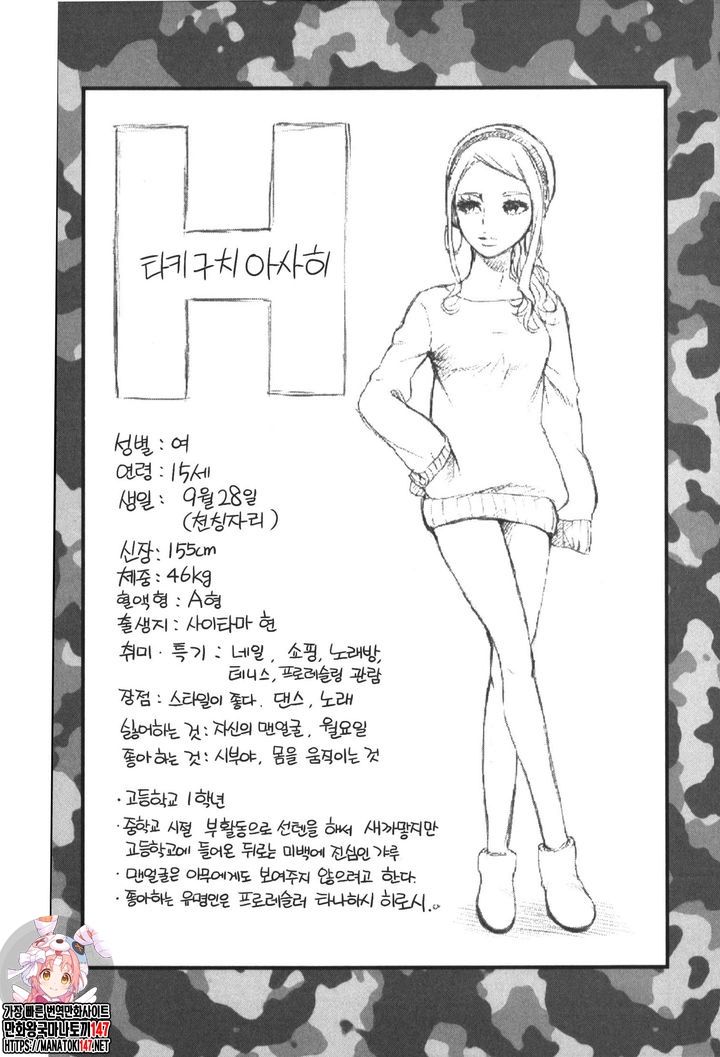 H
타키구치 아사히
성별 : 여
연령 : 15세
생일 : 9월 28일
(천칭자리)
신장 : 155cm
체중 : 46kg
혈액형 : A형
출생지 : 사이타마 현
취미 · 특기 : 네일, 쇼핑, 노래방,
테니스, 프로레슬링 관람
장점 : 스타일이 좋다. 댄스, 노래
싫어하는 것 : 자신의 맨얼굴, 월요일
좋아하는 것 : 시부야, 몸을 움직이는 것
· 고등학교 1학년
· 중학교 시절 부활동으로 선텐을 해서 새까맣지만
고등학교에 들어온 뒤로는 미백에 진심인 갸루
· 맨얼굴은 아무에게도 보여주지 않으려고 한다.
· 좋아하는 유명인은 프로레슬러 타나하시 히로시.
가장 빠른 번역만화사이트
만화왕국마나토끼147
HTTPS://MANATOKI147.NET